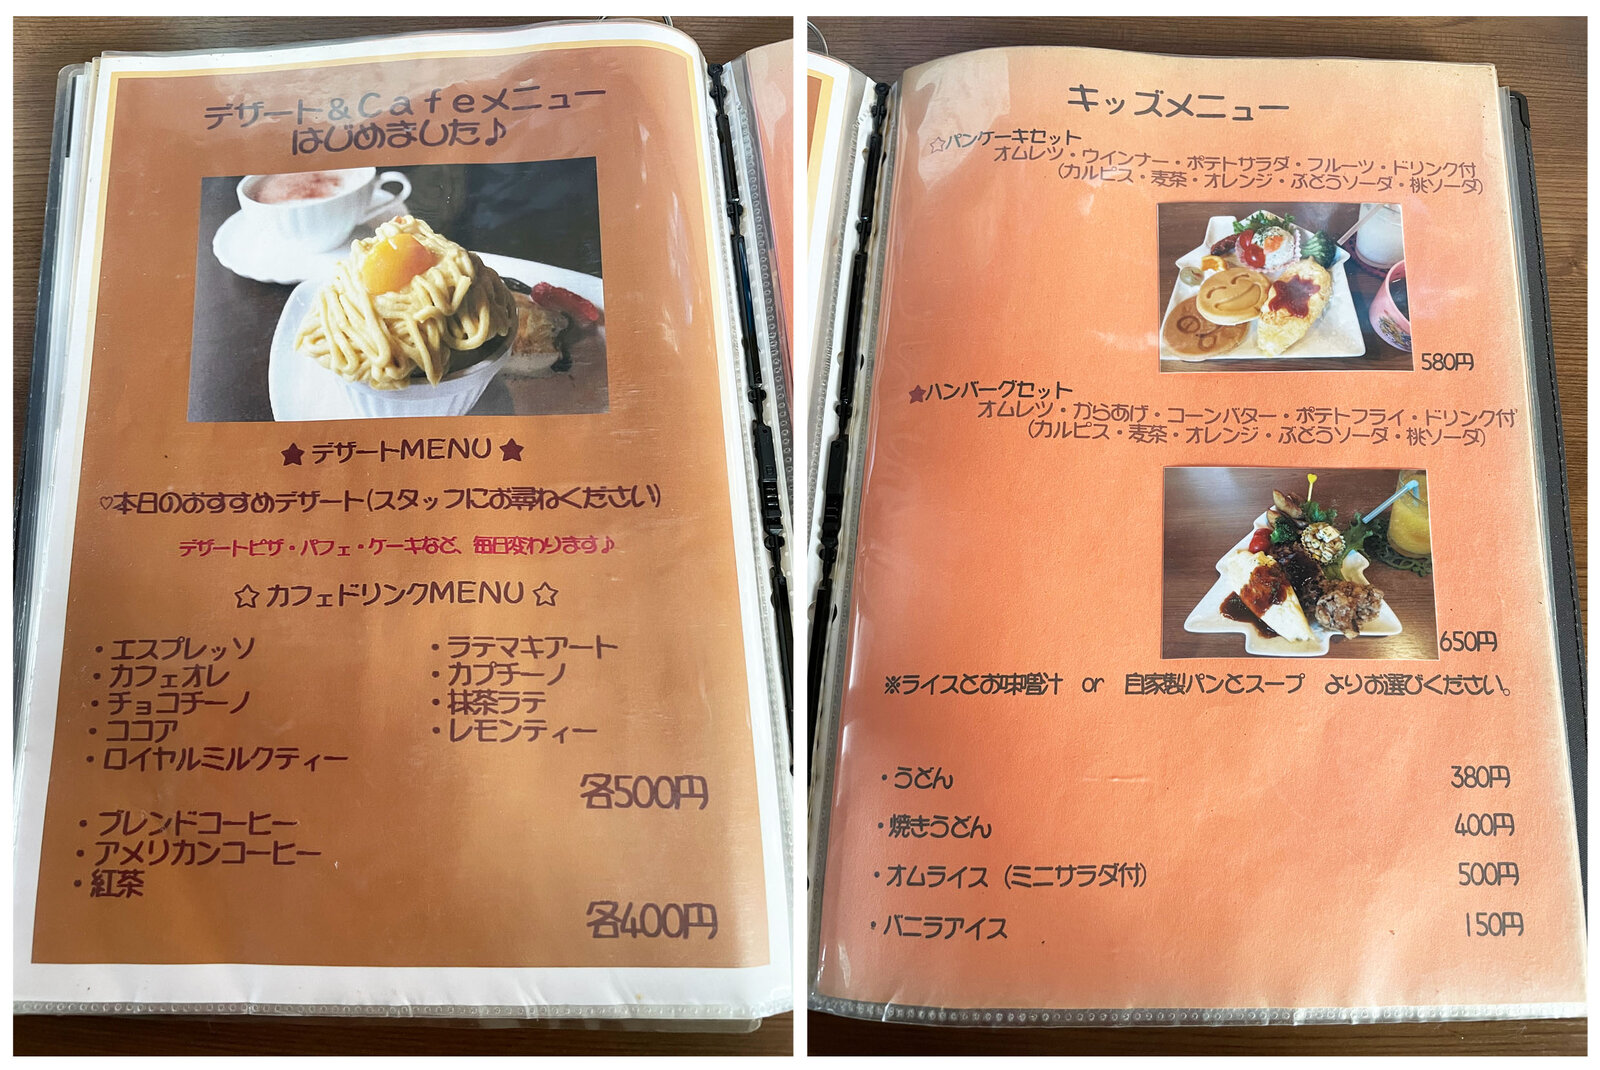 デザート&Cafeメニュー
はじめました♪
★デザートMENU★
♡本日のおすすめデザート(スタッフにお尋ねください)
デザートピザ・パフェ・ケーキなど、毎日変わります♪
☆カフェドリンクMENU☆
・エスプレッソ
・カフェオレ
・チョコチーノ
・ココア
・ロイヤルミルクティー
・ラテマキアート
・カプチーノ
・抹茶ラテ
・レモンティー
各500円
・ブレンドコーヒー
・アメリカンコーヒー
・紅茶
各400円
キッズメニュー
☆パンケーキセット
オムレツ・ウインナー・ポテトサラダ・フルーツ・ドリンク付
(カルピス・麦茶・オレンジ・ぶどうソーダ・桃ソーダ)
580円
★ハンバーグセット
オムレツ・からあげ・コーンバター・ポテトフライ・ドリンク付
(カルピス・麦茶・オレンジ・ぶどうソーダ・桃ソーダ)
650円
※ライスとお味噌汁 or 自家製パンとスープ よりお選びください。
・うどん 380円
・焼きうどん 400円
・オムライス (ミニサラダ付) 500円
・バニラアイス 150円